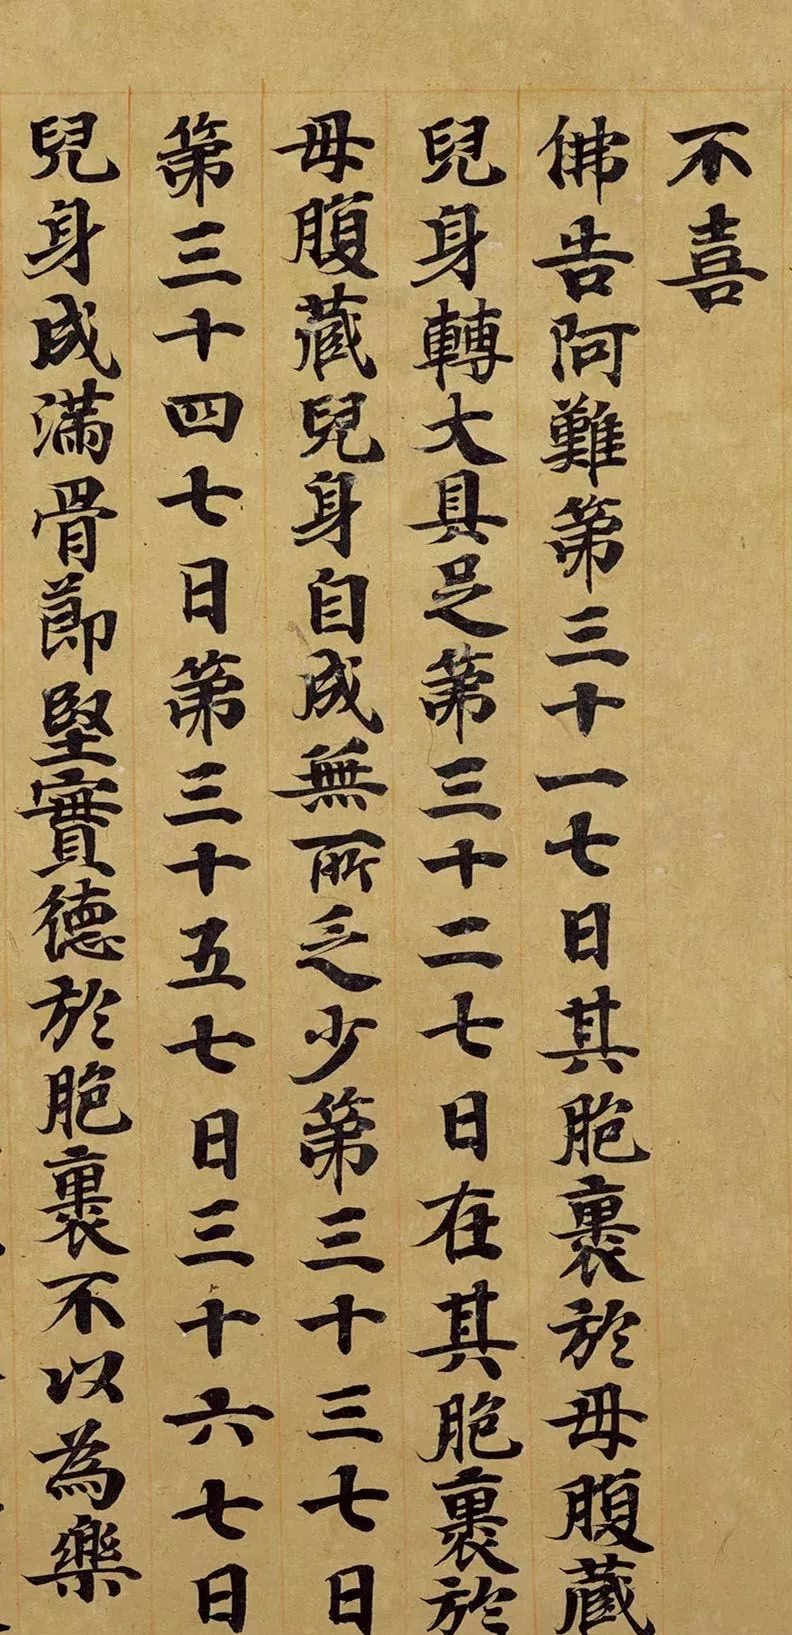 不喜
佛告阿難第三十一七日其胞裹於母腹藏
兒身轉大具足第三十二七日在其胞裹於
母腹藏兒身自成無所乏少第三十三七日
第三十四七日第三十五七日三十六七日
兒身成滿骨節堅實德於胞裹不以為樂